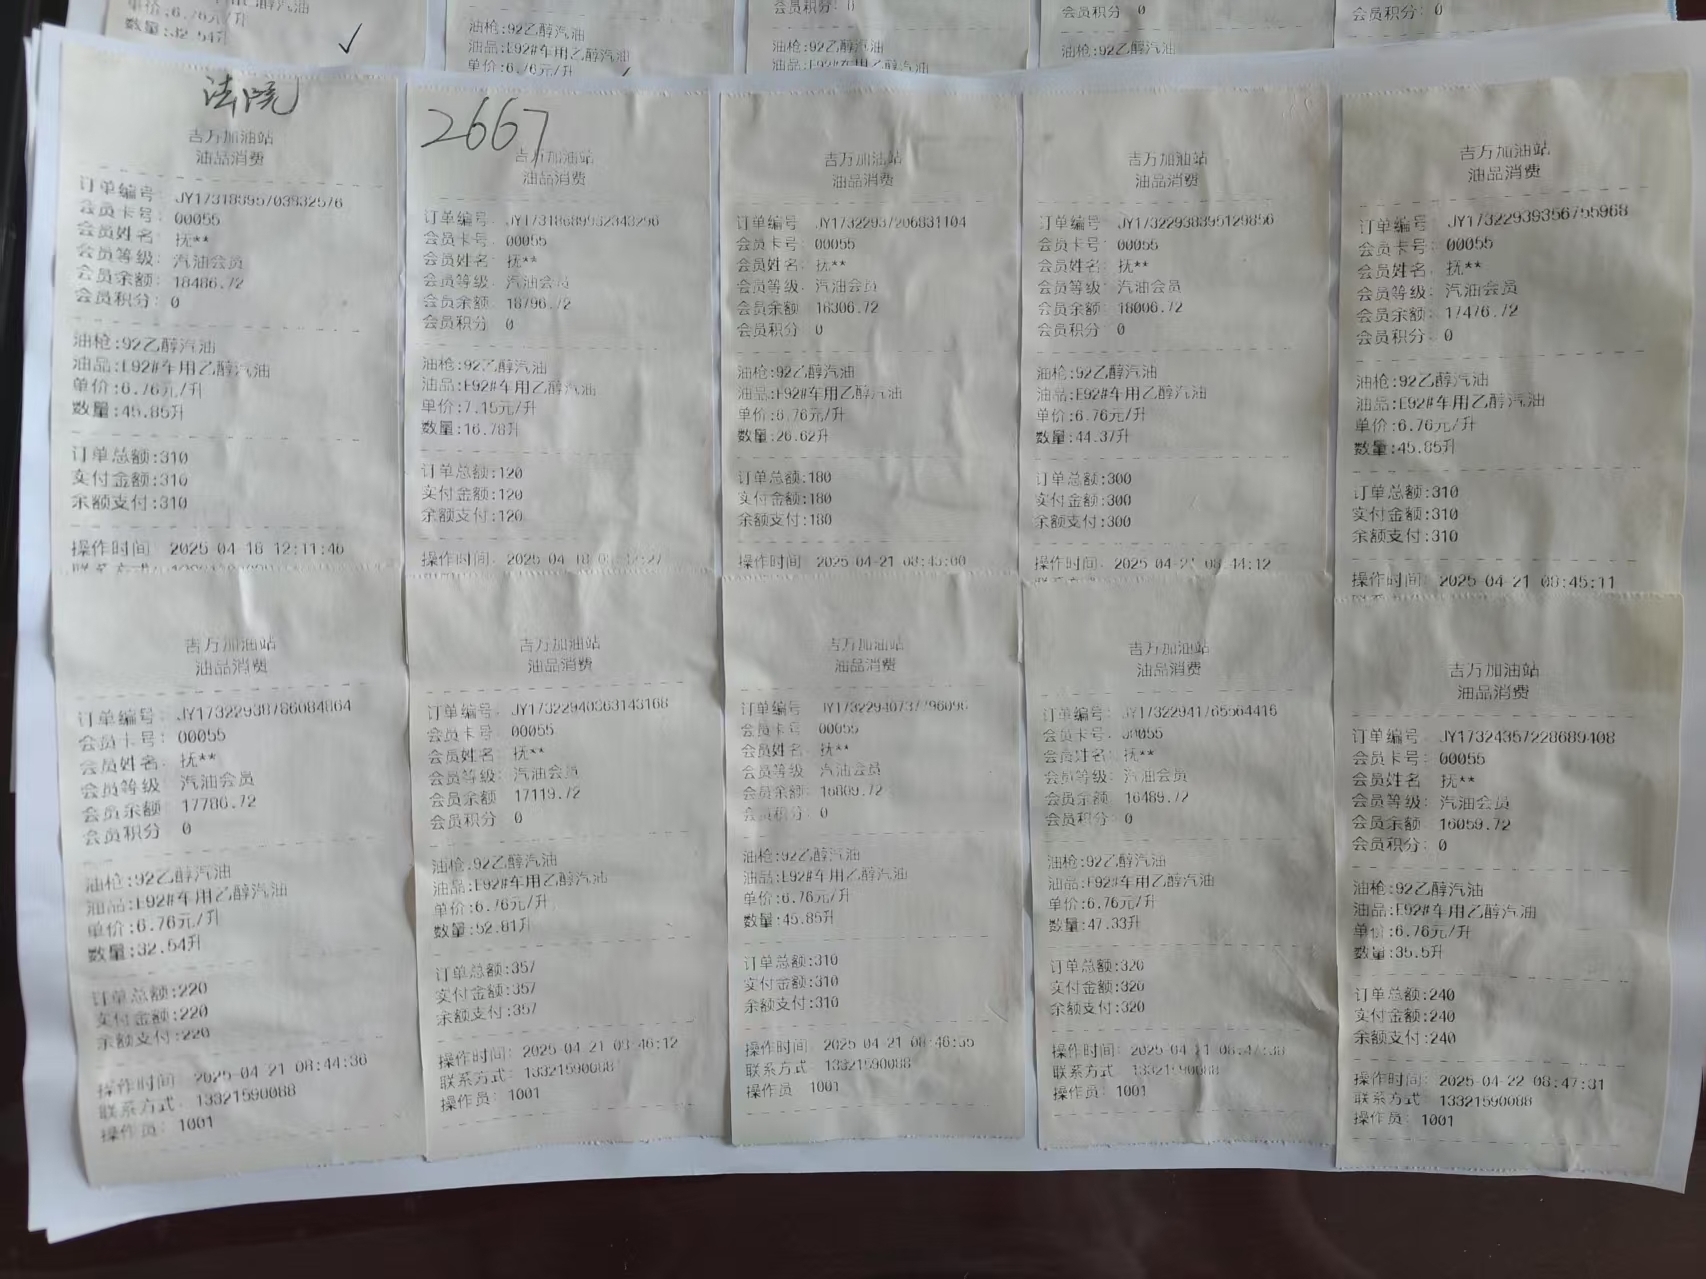 单价:6.76元/升
数量:32.54升
油枪:92乙醇汽油
油品:E92#车用乙醇汽油
单价:6.76元/升
会员积分: 0
油枪:92乙醇汽油
油品:E92#车用乙醇汽油
会员积分 0
油枪:92乙醇汽油
会员积分: 0
法院
吉万加油站
油品消费
订单编号:
会员卡号: 00055
会员姓名: 抚**
会员等级: 汽油会员
会员余额: 18486.72
会员积分: 0
油枪:92乙醇汽油
油品:E92#车用乙醇汽油
单价:6.76元/升
数量:45.85升
订单总额:310
实付金额:310
余额支付:310
操作时间: 2025-04-16 12:11:46
2667
吉万加油站
油品消费
订单编号:
会员卡号: 00055
会员姓名: 抚**
会员等级: 汽油会员
会员余额: 18796.72
会员积分 0
油枪:92乙醇汽油
油品:E92#车用乙醇汽油
单价:7.15元/升
数量:16.78升
订单总额:120
实付金额:120
余额支付:120
操作时间:
吉万加油站
油品消费
订单编号: JY17322937206831104
会员卡号: 00055
会员姓名: 抚**
会员等级: 汽油会员
会员余额: 18306.72
会员积分 0
油枪:92乙醇汽油
油品:E92#车用乙醇汽油
单价:6.76元/升
数量:26.62升
订单总额:180
实付金额:180
余额支付:180
操作时间 2025-04-21
吉万加油站
油品消费
订单编号: JY17322938395129856
会员卡号: 00055
会员姓名: 抚**
会员等级: 汽油会员
会员余额: 18006.72
会员积分: 0
油枪:92乙醇汽油
油品:E92#车用乙醇汽油
单价:6.76元/升
数量:44.37升
订单总额:300
实付金额:300
余额支付:300
操作时间: 2025-04-21 08:44:12
吉万加油站
油品消费
订单编号: JY17322939356755968
会员卡号: 00055
会员姓名: 抚**
会员等级: 汽油会员
会员余额: 17476.72
会员积分: 0
油枪:92乙醇汽油
油品:E92#车用乙醇汽油
单价:6.76元/升
数量:45.85升
订单总额:310
实付金额:310
余额支付:310
操作时间: 2025-04-21 08:45:11
吉万加油站
油品消费
订单编号: JY17322938786084864
会员卡号: 00055
会员姓名: 抚**
会员等级 汽油会员
会员余额 17786.72
会员积分 0
油枪:92乙醇汽油
油品:E92#车用乙醇汽油
单价:6.76元/升
数量:32.54升
订单总额:220
实付金额:220
余额支付:220
操作时间 2025-04-21 08:44:36
联系方式: 13321590088
操作员: 1001
吉万加油站
油品消费
订单编号: JY17322940363143168
会员卡号: 00055
会员姓名: 抚**
会员等级: 汽油会员
会员余额 17119.72
会员积分 0
油枪:92乙醇汽油
油品:E92#车用乙醇汽油
单价:6.76元/升
数量:52.81升
订单总额:357
实付金额:357
余额支付:357
操作时间: 2025-04-21 08:46:12
联系方式: 13321590088
操作员: 1001
吉万加油站
油品消费
订单编号
会员卡号 00055
会员姓名 抚**
会员等级 汽油会员
会员余额: 16809.72
会员积分: 0
油枪:92乙醇汽油
油品:E92#车用乙醇汽油
单价:6.76元/升
数量:45.85升
订单总额:310
实付金额:310
余额支付:310
操作时间: 2025-04-21
联系方式: 13321590088
操作员 1001
吉万加油站
油品消费
订单编号: JY17322941765564416
会员卡号: 00055
会员姓名: 抚**
会员等级: 汽油会员
会员余额 16489.72
会员积分: 0
油枪:92乙醇汽油
油品:E92#车用乙醇汽油
单价:6.76元/升
数量:47.33升
订单总额:320
实付金额:320
余额支付:320
操作时间:
联系方式: 13321590088
操作员: 1001
吉万加油站
油品消费
订单编号 JY17324357228689408
会员卡号: 00055
会员姓名 抚**
会员等级: 汽油会员
会员余额 16059.72
会员积分: 0
油枪:92乙醇汽油
油品:E92#车用乙醇汽油
单价:6.76元/升
数量:35.5升
订单总额:240
实付金额:240
余额支付:240
操作时间: 2025-04-22 08:47:31
联系方式: 13321590088
操作员: 1001